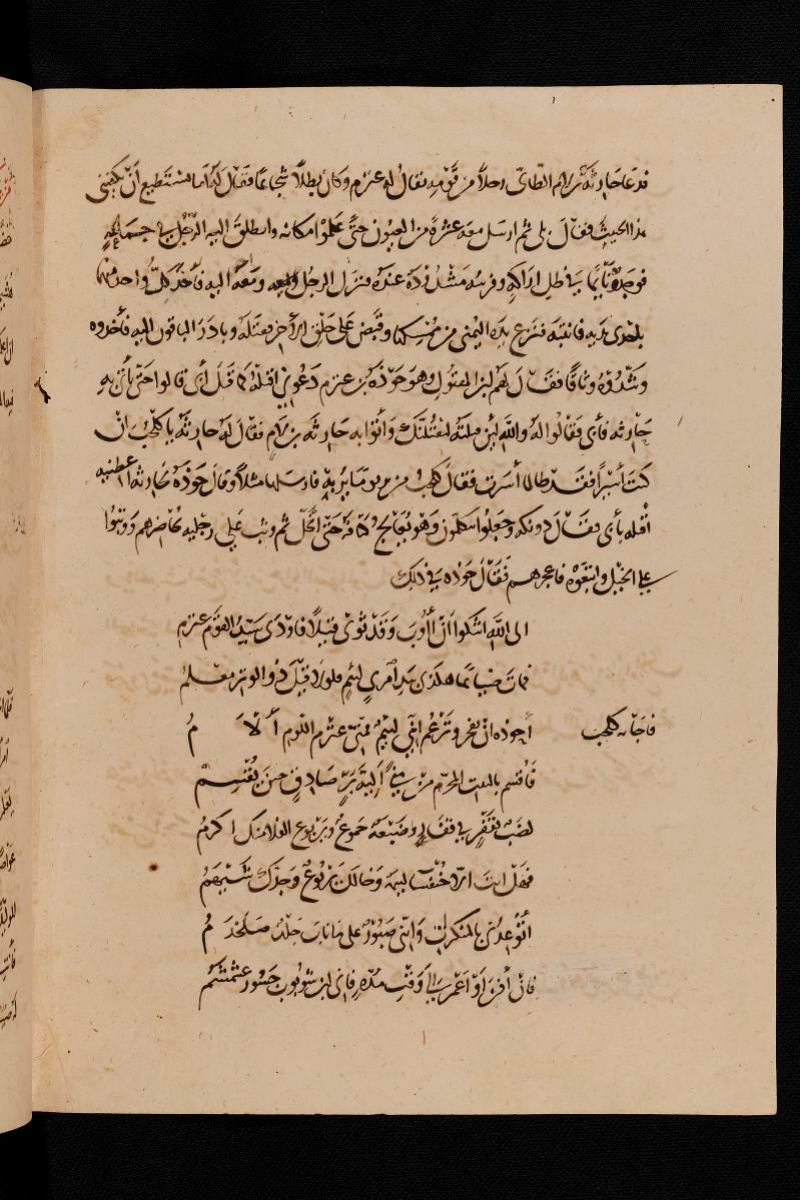 فدعا حارثة بن لام الطائي رجلا من قومه يقال له عترم وكان بطلا شجاعا فقال له أما تستطيع أن تكفيني
هذا الخبيث فقال بلى ثم ارسل معه عشرة من العيون حتى علموا مكانه وانطلق اليه الرجل في جماعة
فوجدوه نائما في ظل اراكة وفرسه مشدودة عنده فنزل الرجل ومعه اليه فأخذ كل واحد منهما
باحدى يديه فانتبه فنزع يده اليمنى من ممسكها وقبض على حلق الاخر فقتله وبادر الباقون اليه فأخذوه
وشدوه وثاقا فقال لهم ابن المقتول وهو حوذة بن عترم دعوني اقتله كما قتل أبي قالوا حتى نأتي به
حارثة فأبى فقالوا له والله لئن قتلته لنقتلنك وأتوا به حارثة بن لام فقال له حارثة يا كلحب ان
كنت أسيرا فقد طالما أسرت فقال كلحب من ير يوما ير به فارسلها مثلا وقال حوذة لحارثة اعطنيه
أقتله بأبي فقال دونكه وجعلوا يتكلمون وهو يعالج كتافه حتى انحل ثم وثب على رجليه يحاضرهم وتواثبوا
على الخيل واتبعوه فاعجزهم فقال حوذة في ذلك
الى الله اشكوا ان أؤوب وقد ثوى قتيلا فاودى سيد القوم عترم
فمات ضياعا هكذا بيد امرئ لئيم فلولا قيل ذو الوتر معلم
فاجابه كلحب
أحوذة ان تفخر وتزعم انني لئيم فمني عترم اللوم ألأم
فأقسم بالبيت المحرم من منى ألية بر صادق حين يقسم
لضب بقفر في قفار وضبعة خموع ويربوع الفلا منك اكرم
فهل انت الا خنفساء لئيمة وخالك يربوع وجدك شيهم
أتوعدني بالمنكرات وانني صبور على ما ناب جلد صلخدم
فان أفن او اعمر الى وقت مدة فاني ابن شؤبوب جسور عشمشم